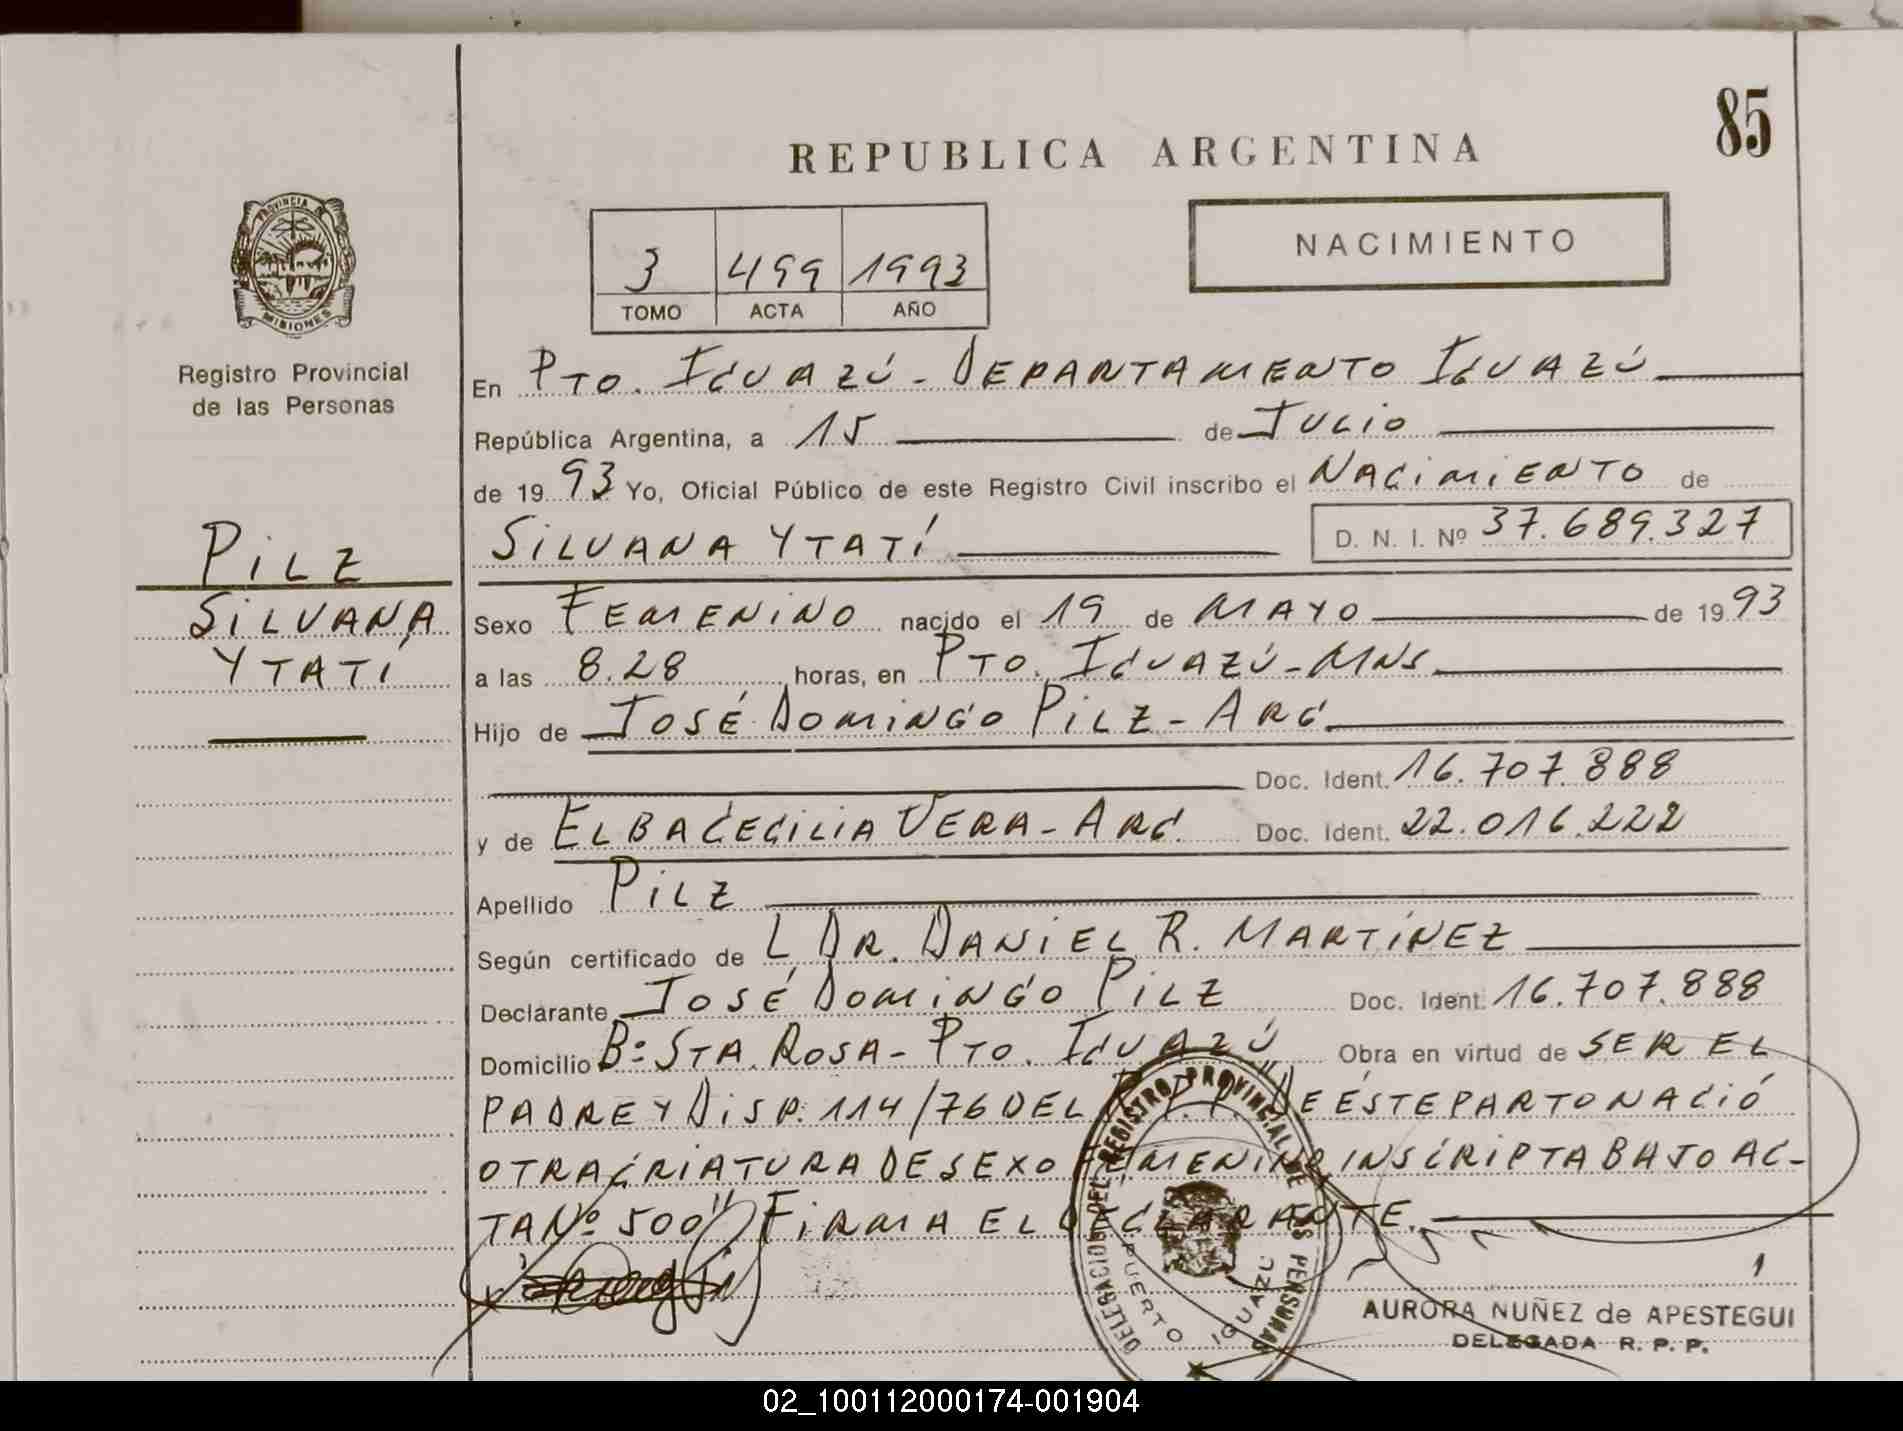 85
REPUBLICA ARGENTINA
NACIMIENTO
3 499 1993
TOMO ACTA AÑO
PROVINCIA DE
MISIONES
Registro Provincial
de las Personas
PILZ
SILVANA
YTATÍ
En PTO. IGUAZÚ - DEPARTAMENTO IGUAZÚ
República Argentina, a 15 de JULIO
de 1993 Yo, Oficial Público de este Registro Civil inscribo el NACIMIENTO de
SILVANA YTATÍ D. N. I. Nº 37.689.327
Sexo FEMENINO nacido el 19 de MAYO de 1993
a las 8.28 horas, en PTO. IGUAZÚ - MNS
Hijo de JOSÉ DOMINGO PILZ - ARG.
Doc. Ident. 16.707.888
y de ELBA CECILIA VERA - ARG. Doc. Ident. 22.016.222
Apellido PILZ
Según certificado de L DR. DANIEL R. MARTÍNEZ
Declarante JOSÉ DOMINGO PILZ Doc. Ident. 16.707.888
Domicilio Bº STA. ROSA - PTO. IGUAZÚ Obra en virtud de SER EL
PADRE Y DISP. 114/76 DEL R.P.P. "DE ÉSTE PARTO NACIÓ
OTRA CRIATURA DE SEXO FEMENINO INSCRIPTA BAJO AC-
TA Nº 500" FIRMA EL DECLARANTE.
DELEGACION DEL REGISTRO PROVINCIAL DE LAS PERSONAS
PUERTO IGUAZU
AURORA NUÑEZ de APESTEGUI
DELEGADA R. P. P.
02_100112000174-001904